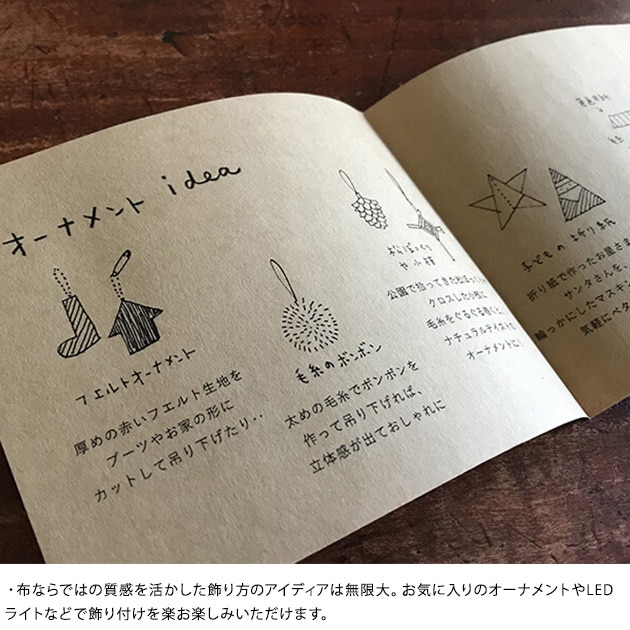 オーナメント idea
フエルトオーナメント
厚めの赤いフエルト生地を
ブーツやお家の形に
カットして吊り下げたり‥
毛糸のボンボン
太めの毛糸でボンボンを
作って吊り下げれば、
立体感が出ておしゃれに
まつぼっくり
や小枝
公園で拾ってきた松ぼっくり
クロスした小枝に
毛糸をぐるぐる巻くと、
ナチュラルテイストの
オーナメントに!
子どもの折り紙
折り紙で作ったお星さま
サンタさんを、
輪っかにしたマスキン
気軽にペタ
・布ならではの質感を活かした飾り方のアイディアは無限大。お気に入りのオーナメントやLED
ライトなどで飾り付けを楽お楽しみいただけます。